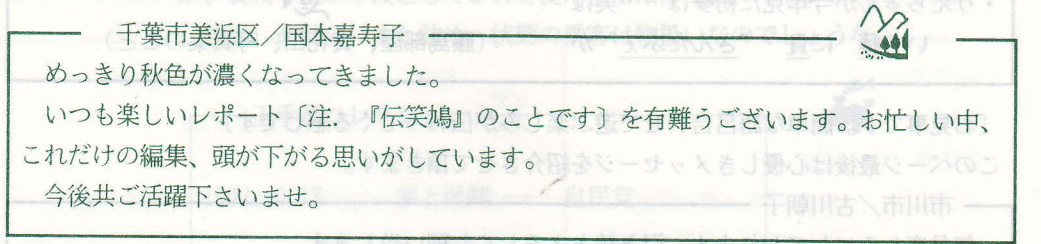 千葉市美浜区／国本嘉寿子
めっきり秋色が濃くなってきました。
いつも楽しいレポート〔注．『伝笑鳩』のことです〕を有難うございます。お忙しい中、
これだけの編集、頭が下がる思いがしています。
今後共ご活躍下さいませ。